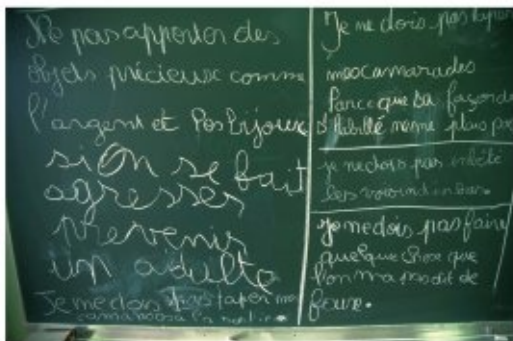 Ne pas apporter des
objets précieux comme
l'argent et les bijoux
si on se fait
agresser
prevenir
un adulte
Je me dois pas taper me
camarades a la
Je ne dois pas taper
mes camarades
Parce que sa façon de
s'habillé me me plais pas
je ne dois pas
les voisin
je me dois pas faire
quelque chose que
l'on m'a pas dit de
faire.